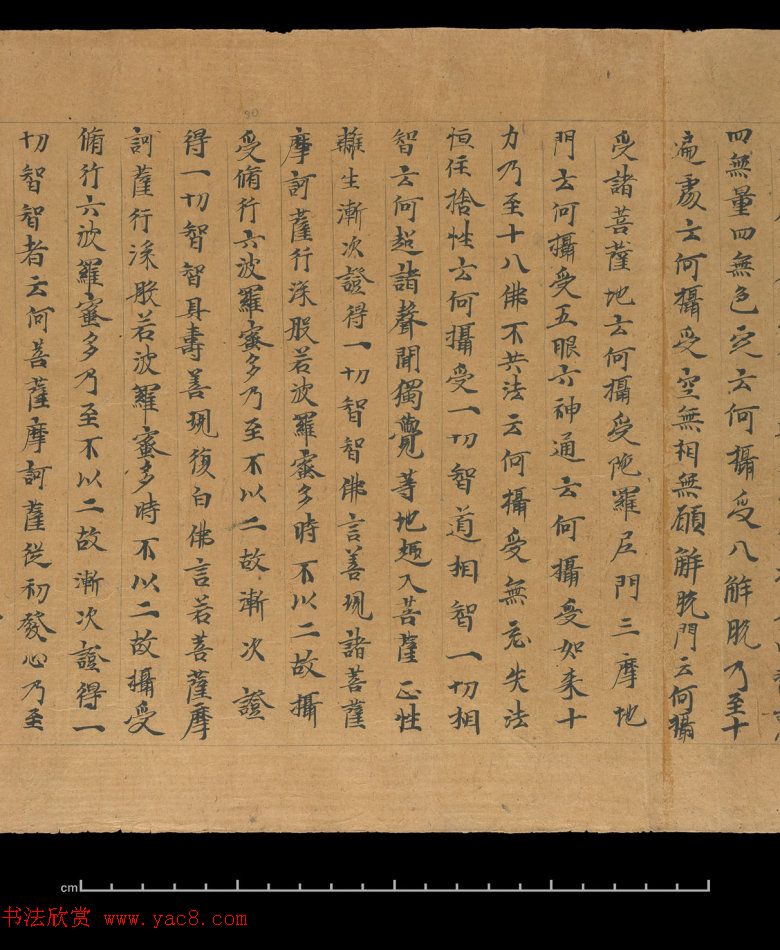 四無量四無色定云何攝受八解脫乃至十
遍處云何攝受空無相無願解脫門云何攝
受諸菩薩地云何攝受陀羅尼門三摩地
門云何攝受五眼六神通云何攝受如来十
力乃至十八佛不共法云何攝受無忘失法
恒住捨性云何攝受一切智道相智一切相
智云何超諸聲聞獨覺等地趣入菩薩正性
離生漸次證得一切智智佛言善現諸菩薩
摩訶薩行深般若波羅蜜多時不以二故攝
受脩行六波羅蜜多乃至不以二故漸次證
得一切智智具壽善現復白佛言若菩薩摩
訶薩行深般若波羅蜜多時不以二故攝受
脩行六波羅蜜多乃至不以二故漸次證得一
切智智者云何菩薩摩訶薩從初發心乃至
90
cm
书法欣赏 www.yac8.com